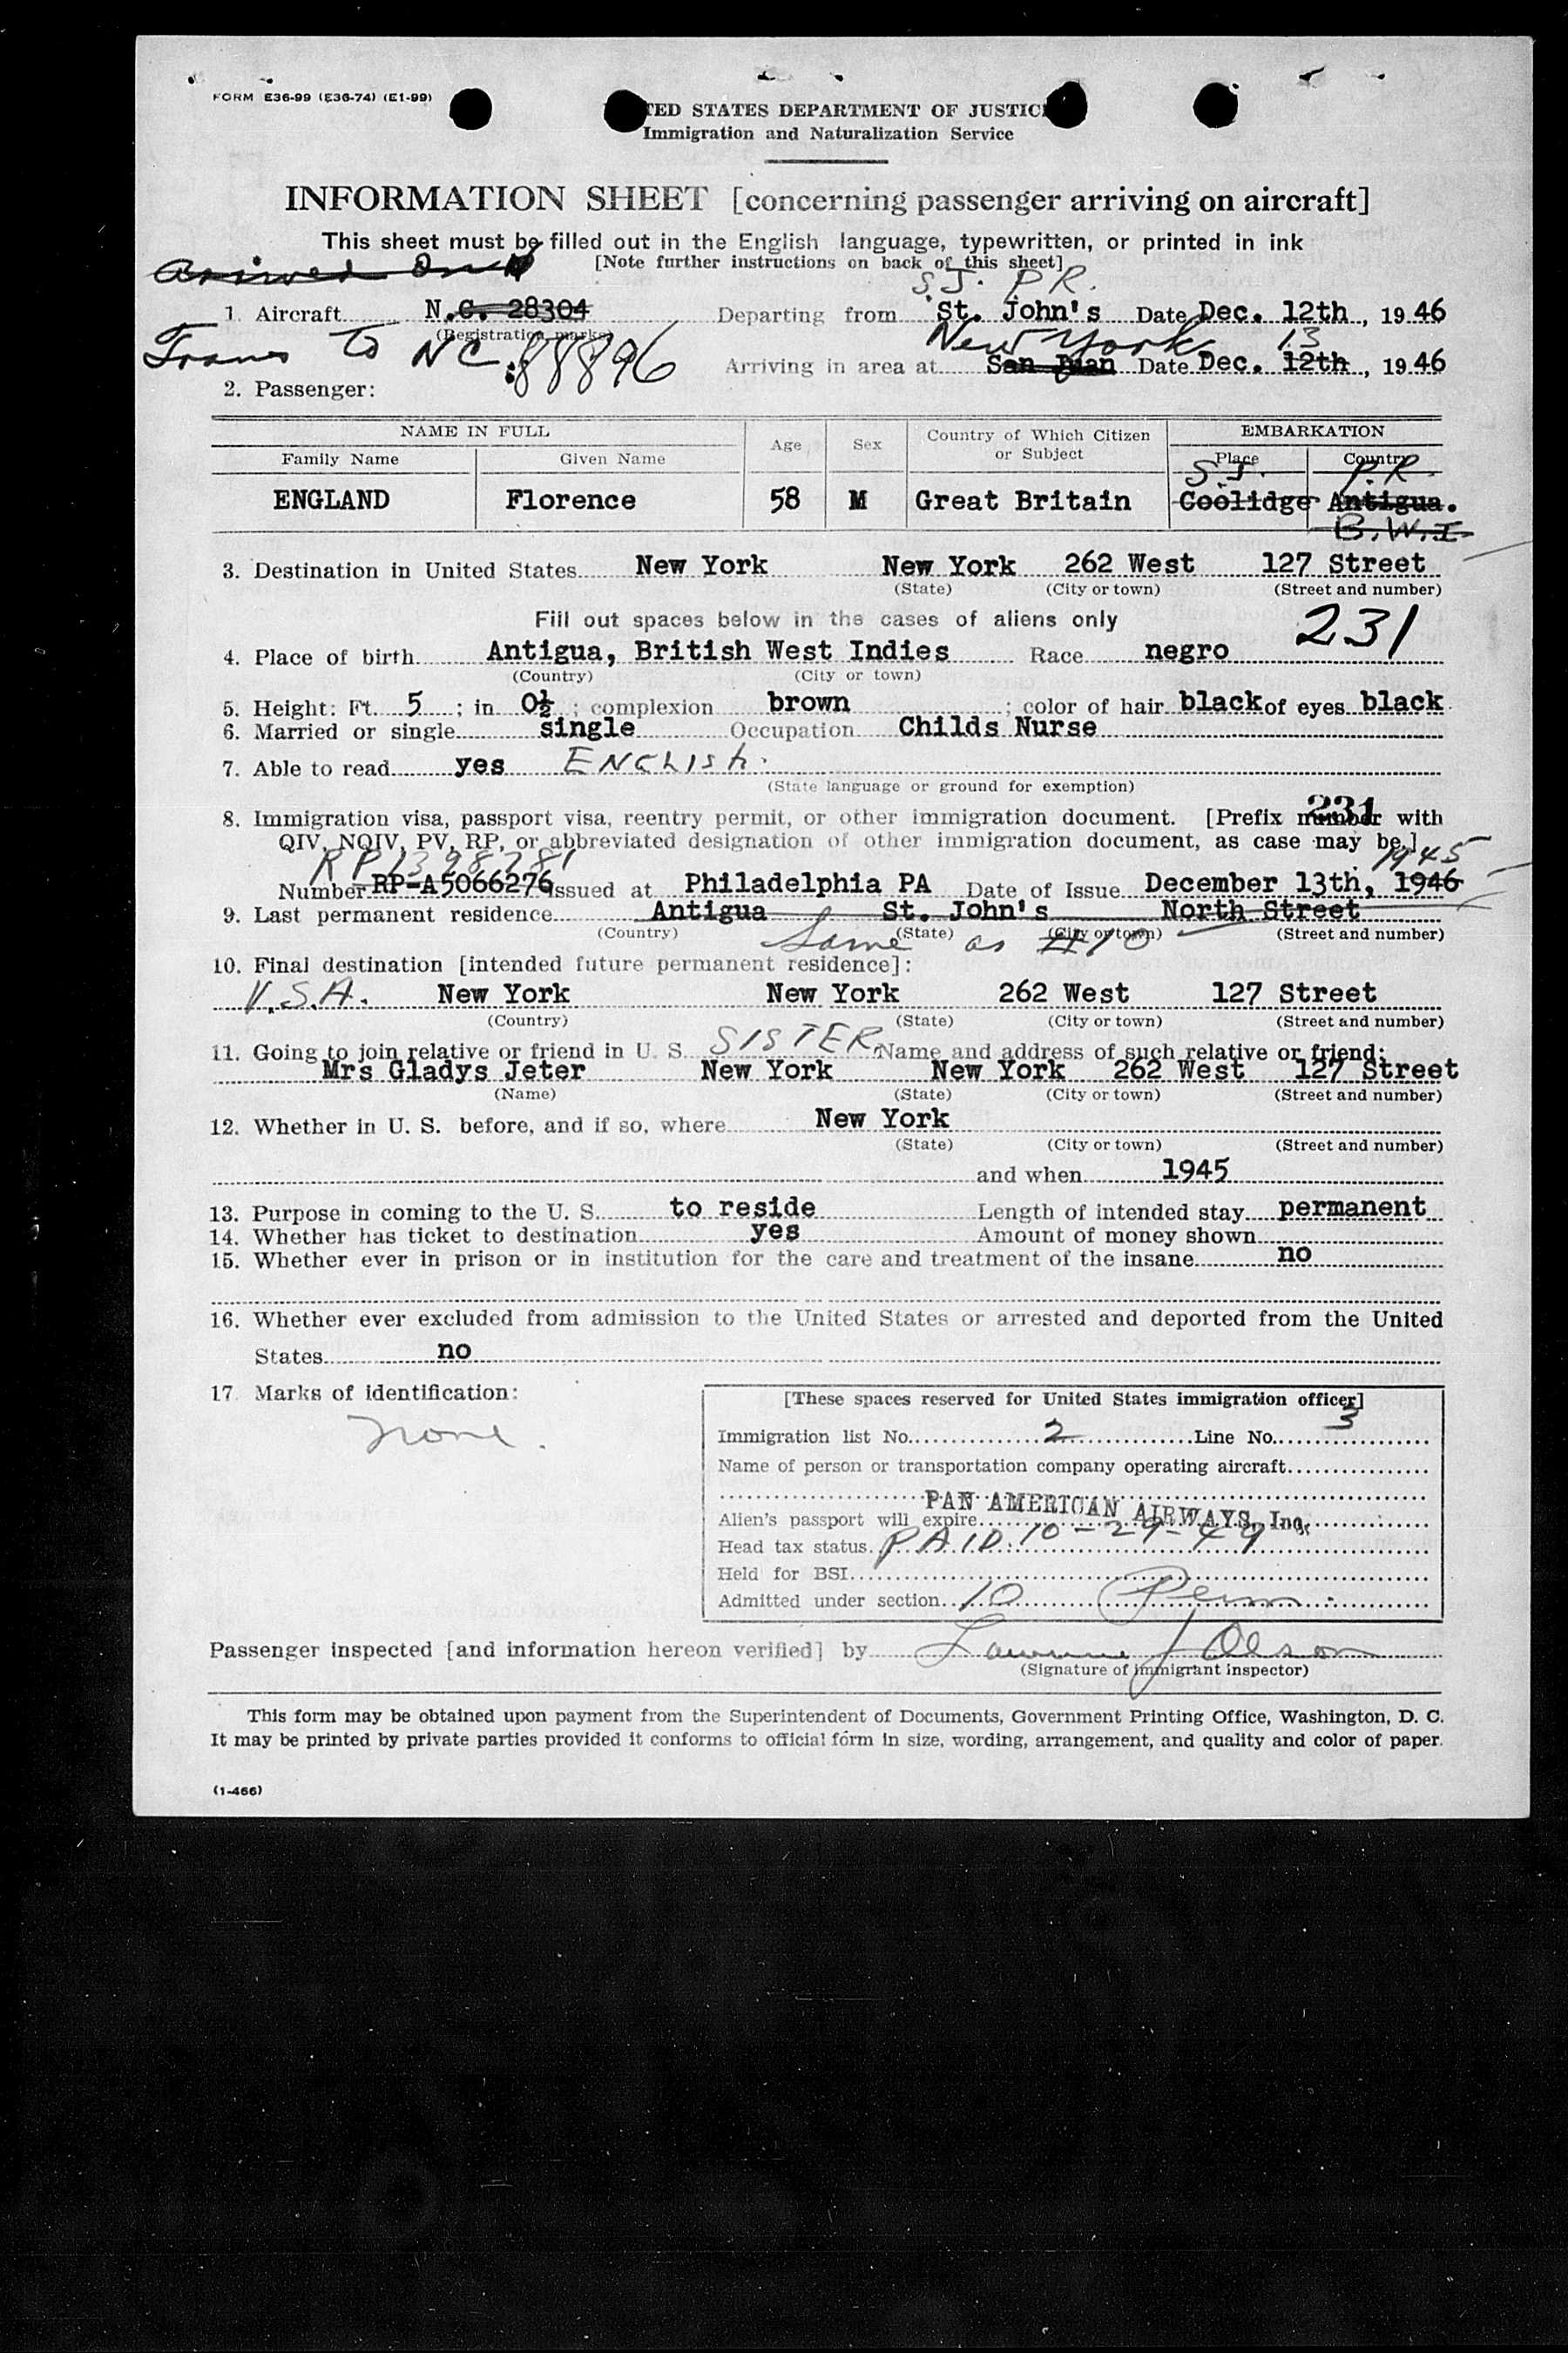 FORM E36-99 (E36-74) (E1-99)
TED STATES DEPARTMENT OF JUSTIC
Immigration and Naturalization Service
INFORMATION SHEET [concerning passenger arriving on aircraft]
This sheet must be filled out in the English language, typewritten, or printed in ink
Arrived On
[Note further instructions on back of this sheet]
S.J. P.R.
1. Aircraft N.C. 28304 Departing from St. John's Date Dec. 12th, 1946
(Registration marks)
Trans to NC 88896
New York 13
Arriving in area at San Juan Date Dec. 12th, 1946
2. Passenger:
NAME IN FULL Age Sex Country of Which Citizen or Subject EMBARKATION
Family Name Given Name Place Country
S.J. P.R.
ENGLAND Florence 58 M Great Britain Coolidge Antigua.
B.W.I
3. Destination in United States New York New York 262 West 127 Street
(State) (City or town) (Street and number)
Fill out spaces below in the cases of aliens only 231
4. Place of birth Antigua, British West Indies Race negro
(Country) (City or town)
5. Height: Ft. 5 ; in 0½ ; complexion brown ; color of hair black of eyes black
6. Married or single single Occupation Childs Nurse
7. Able to read yes ENGLISH.
(State language or ground for exemption)
231
8. Immigration visa, passport visa, reentry permit, or other immigration document. [Prefix number with
QIV, NQIV, PV, RP, or abbreviated designation of other immigration document, as case may be.]
RP 1398781 1945
Number RP-A5066276 issued at Philadelphia PA Date of Issue December 13th, 1946
9. Last permanent residence Antigua St. John's North Street
(Country) (State) (City or town) (Street and number)
Same as #10
10. Final destination [intended future permanent residence]:
U.S.A. New York New York 262 West 127 Street
(Country) (State) (City or town) (Street and number)
11. Going to join relative or friend in U. S. SISTER Name and address of such relative or friend:
Mrs Gladys Jeter New York New York 262 West 127 Street
(Name) (State) (City or town) (Street and number)
12. Whether in U. S. before, and if so, where New York
(State) (City or town) (Street and number)
and when 1945
13. Purpose in coming to the U. S. to reside Length of intended stay permanent
14. Whether has ticket to destination yes Amount of money shown
15. Whether ever in prison or in institution for the care and treatment of the insane no
16. Whether ever excluded from admission to the United States or arrested and deported from the United
States no
17. Marks of identification:
none.
[These spaces reserved for United States immigration officer]
Immigration list No. 2 Line No. 3
Name of person or transportation company operating aircraft
PAN AMERICAN AIRWAYS, Inc.
Alien's passport will expire 10-29-49
Head tax status PAID.
Held for BSI
Admitted under section 10 Perm.
Passenger inspected [and information hereon verified] by Lawrence J Olson
(Signature of immigrant inspector)
This form may be obtained upon payment from the Superintendent of Documents, Government Printing Office, Washington, D. C.
It may be printed by private parties provided it conforms to official form in size, wording, arrangement, and quality and color of paper.
(1-466)